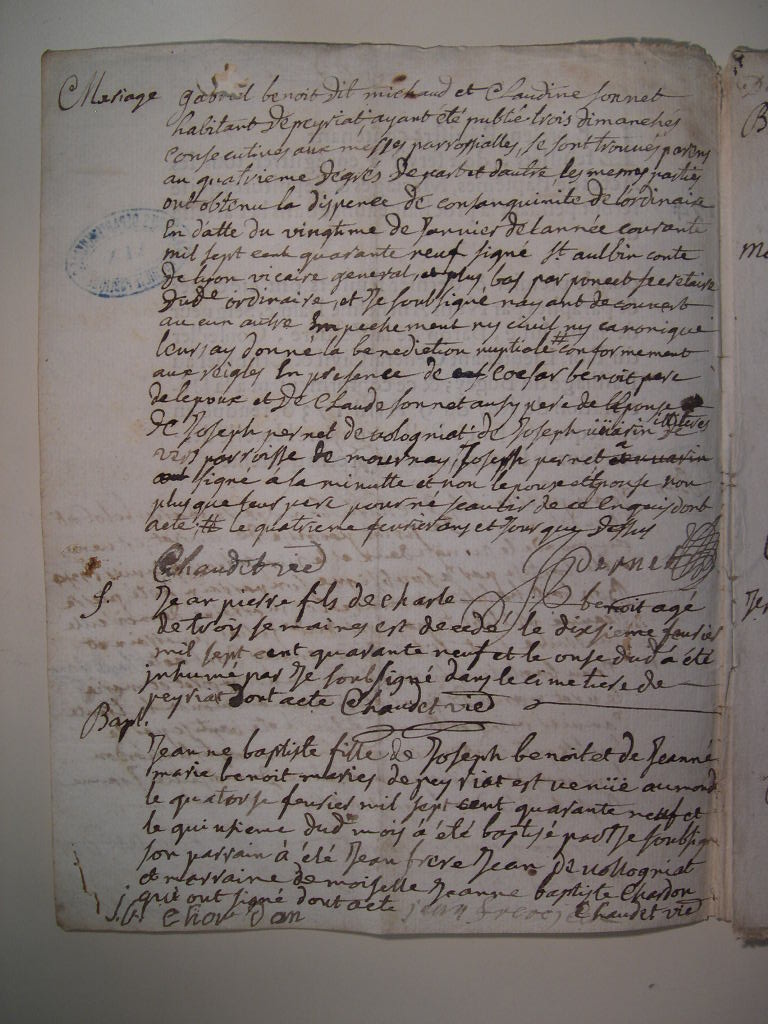 Mariage gabriel benoit dit michaud et Claudine sonnet
habitant depeyriat ayant été publié trois dimanches
consecutives aux messes parrossialles, se sont trouves parens
au quatrieme degrés de part et dautre les memes parties
ont obtenu la dispence de consanquinite de lordinaire
En datte du vingtime de Janvier de lannée courante
mil sept cent quarante neuf signé st aulbin conte
de lyon vicaire general, et plus bas par poncet secretaire
dud ordinaire, et Je soubsigné nayant decouvert
aucun autre Empechement ny civil ny canonique
leurs ay donné la benediction nuptiale # conformement
aux reigles En presence de Coesar benoit pere
de lepoux et de Claude sonnet ausy pere de lepouse
de Joseph pernet de vologniat de Joseph illiteres
parroisse de mournay, Joseph pernet a
signé a la minutte et non lepoux et epouse non
plus que leurs pere pour ne scavoir de ce Enquis dont
acte # le quatrieme fevrier ans et Jour que dessus
Chaudet vic Pernet
f. Jean pierre fils de charle benoit agé
de trois semaines est decedé le dixsieme fevrier
mil sept cent quarante neuf et le onse dud a été
inhumé par Je soubsigné dans le cimetiere de
peyriat dont acte Chaudet vic
Bapt.
Jeanne baptiste fille de Joseph benoit et de Jeanne
marie benoit maries de peyriat est venüe au mond
le quatorse fevrier mil sept cent quarante neuf et
le quinsieme dud mois à été baptisé par Je soubsigne
son parrain à été Jean frere Jean de vollogniat
et marraine demoiselle Jeanne baptiste Chardon
qui ont signé dont acte
j.b. Chardon Chaudet vic